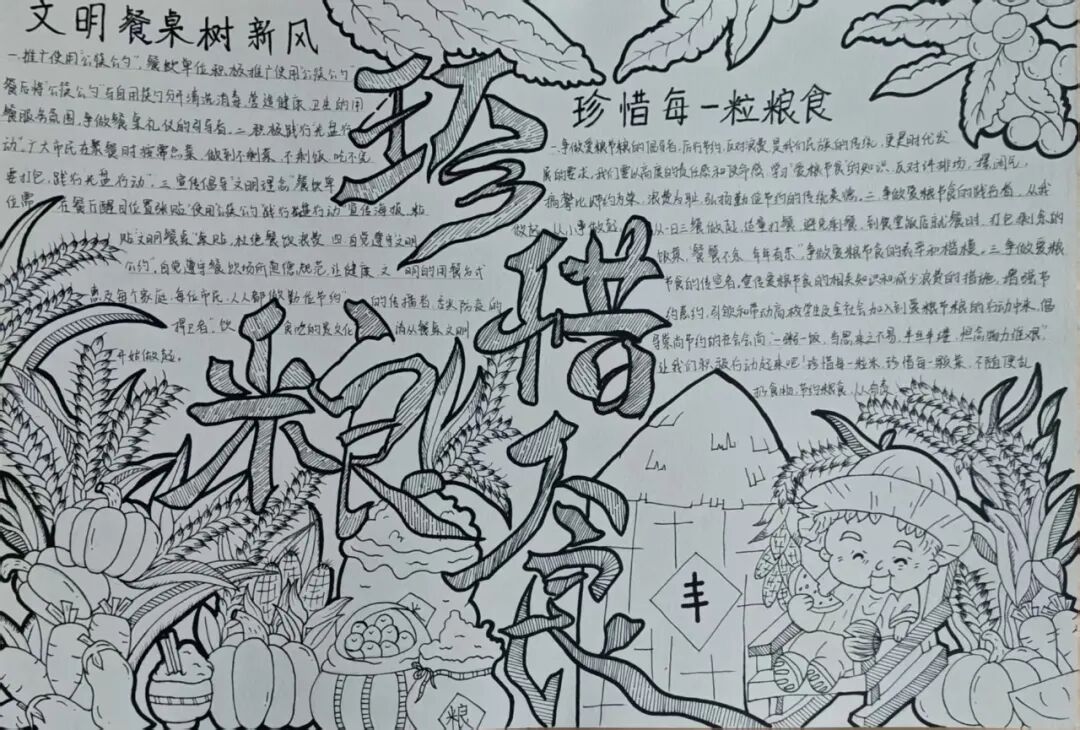 文明餐桌树新风
一.推广使用"公筷公勺",餐饮单位积极推广使用"公筷公勺"
餐后将"公筷公勺"与自用筷勺分开清洗消毒,营造健康、卫生的用
餐服务氛围,争做餐桌礼仪的引导者。二.积极践行"光盘行
动"。广大市民在聚餐时按需点菜,做到不剩菜、不剩饭、吃不完
要打包,践行"光盘行动"。三.宣传倡导"文明理念"餐饮单
位需 在餐厅醒目位置张贴"使用公筷公勺"践行"光盘行动"宣传海报,粘
贴"文明餐桌"桌贴,杜绝餐饮浪费。四.自觉遵守"文明
公约",自觉遵守餐饮场所 规范,让健康、文明的用餐方式
惠及每个家庭、每位市民,人人都做勤俭节约 的传播者、 防疫的
捍卫者"饮 食吃的是文化 消从餐桌文明
开始做起。
珍惜粮食
珍惜每一粒粮食
一.争做爱粮节粮的倡导者。厉行节约、反对浪费是我们民族的传统,更是时代发
展的要求,我们要以高度的责任感和使命感,学习爱粮节食的知识,反对讲排场、摆阔气、
搞攀比,节约为荣、浪费为耻,弘扬勤俭节约的传统美德。二.争做爱粮节食的践行者。从我
做起,从小事做起,从一日三餐做起,适量打餐,避免剩餐,到食堂饭店就餐时,打包剩余的
饭菜,"餐餐不余,年年有余"争做爱粮节食的表率和楷模。三.争做爱粮
节食的传宣者。宣传爱粮节食的相关知识和减少浪费的措施,增强节
约意约,引领和带动高校学生及全社会加入到爱粮节粮的行动中来,倡
导崇尚节约的社会会尚"一粥一饭,当思来之不易,半丝半缕,恒念物力维艰"
让我们积极行动起来吧!珍惜每一粒米,珍惜每一颗菜,不随便乱
扔食物,节约粮食,从
丰
粮